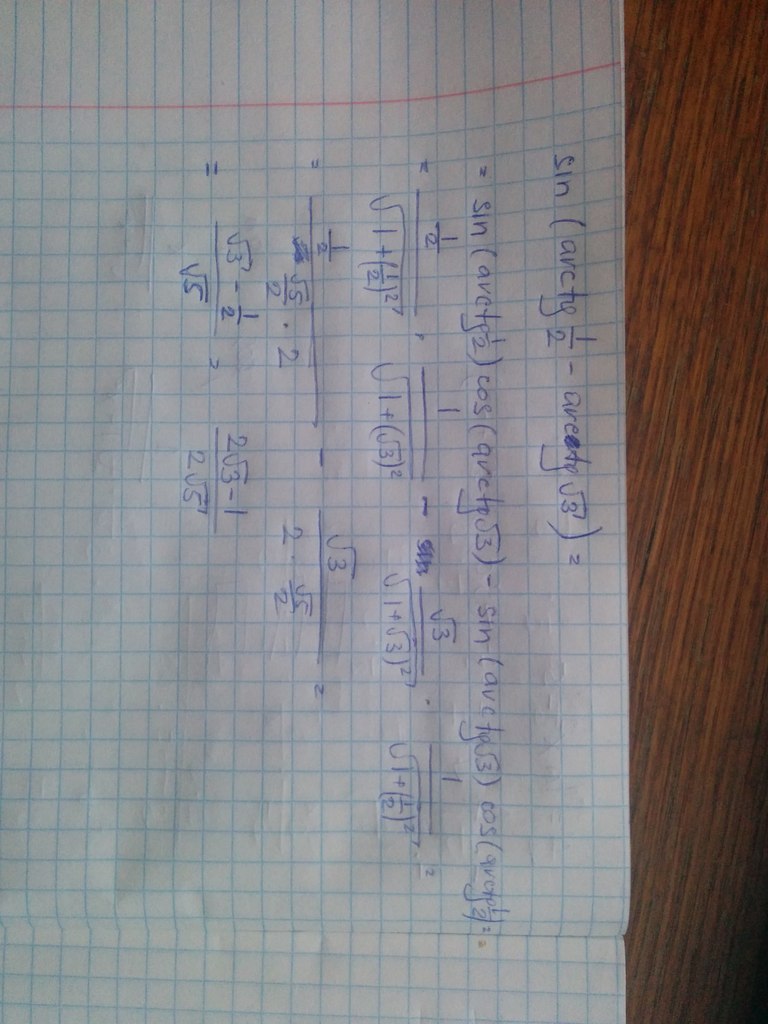 sin (arctg 1/2 - arcctg √3) =
= sin (arctg 1/2) cos (arctg √3) - sin (arctg √3) cos (arctg 1/2) =
= (1/2)/√(1+(1/2)²) · 1/√(1+(√3)²) - √3/√(1+√3)²) · 1/√(1+(1/2)²) =
= (1/2)/(√5/2 · 2) - √3/(2 · √5/2) =
= (√3 - 1/2)/√5 = (2√3-1)/(2√5)